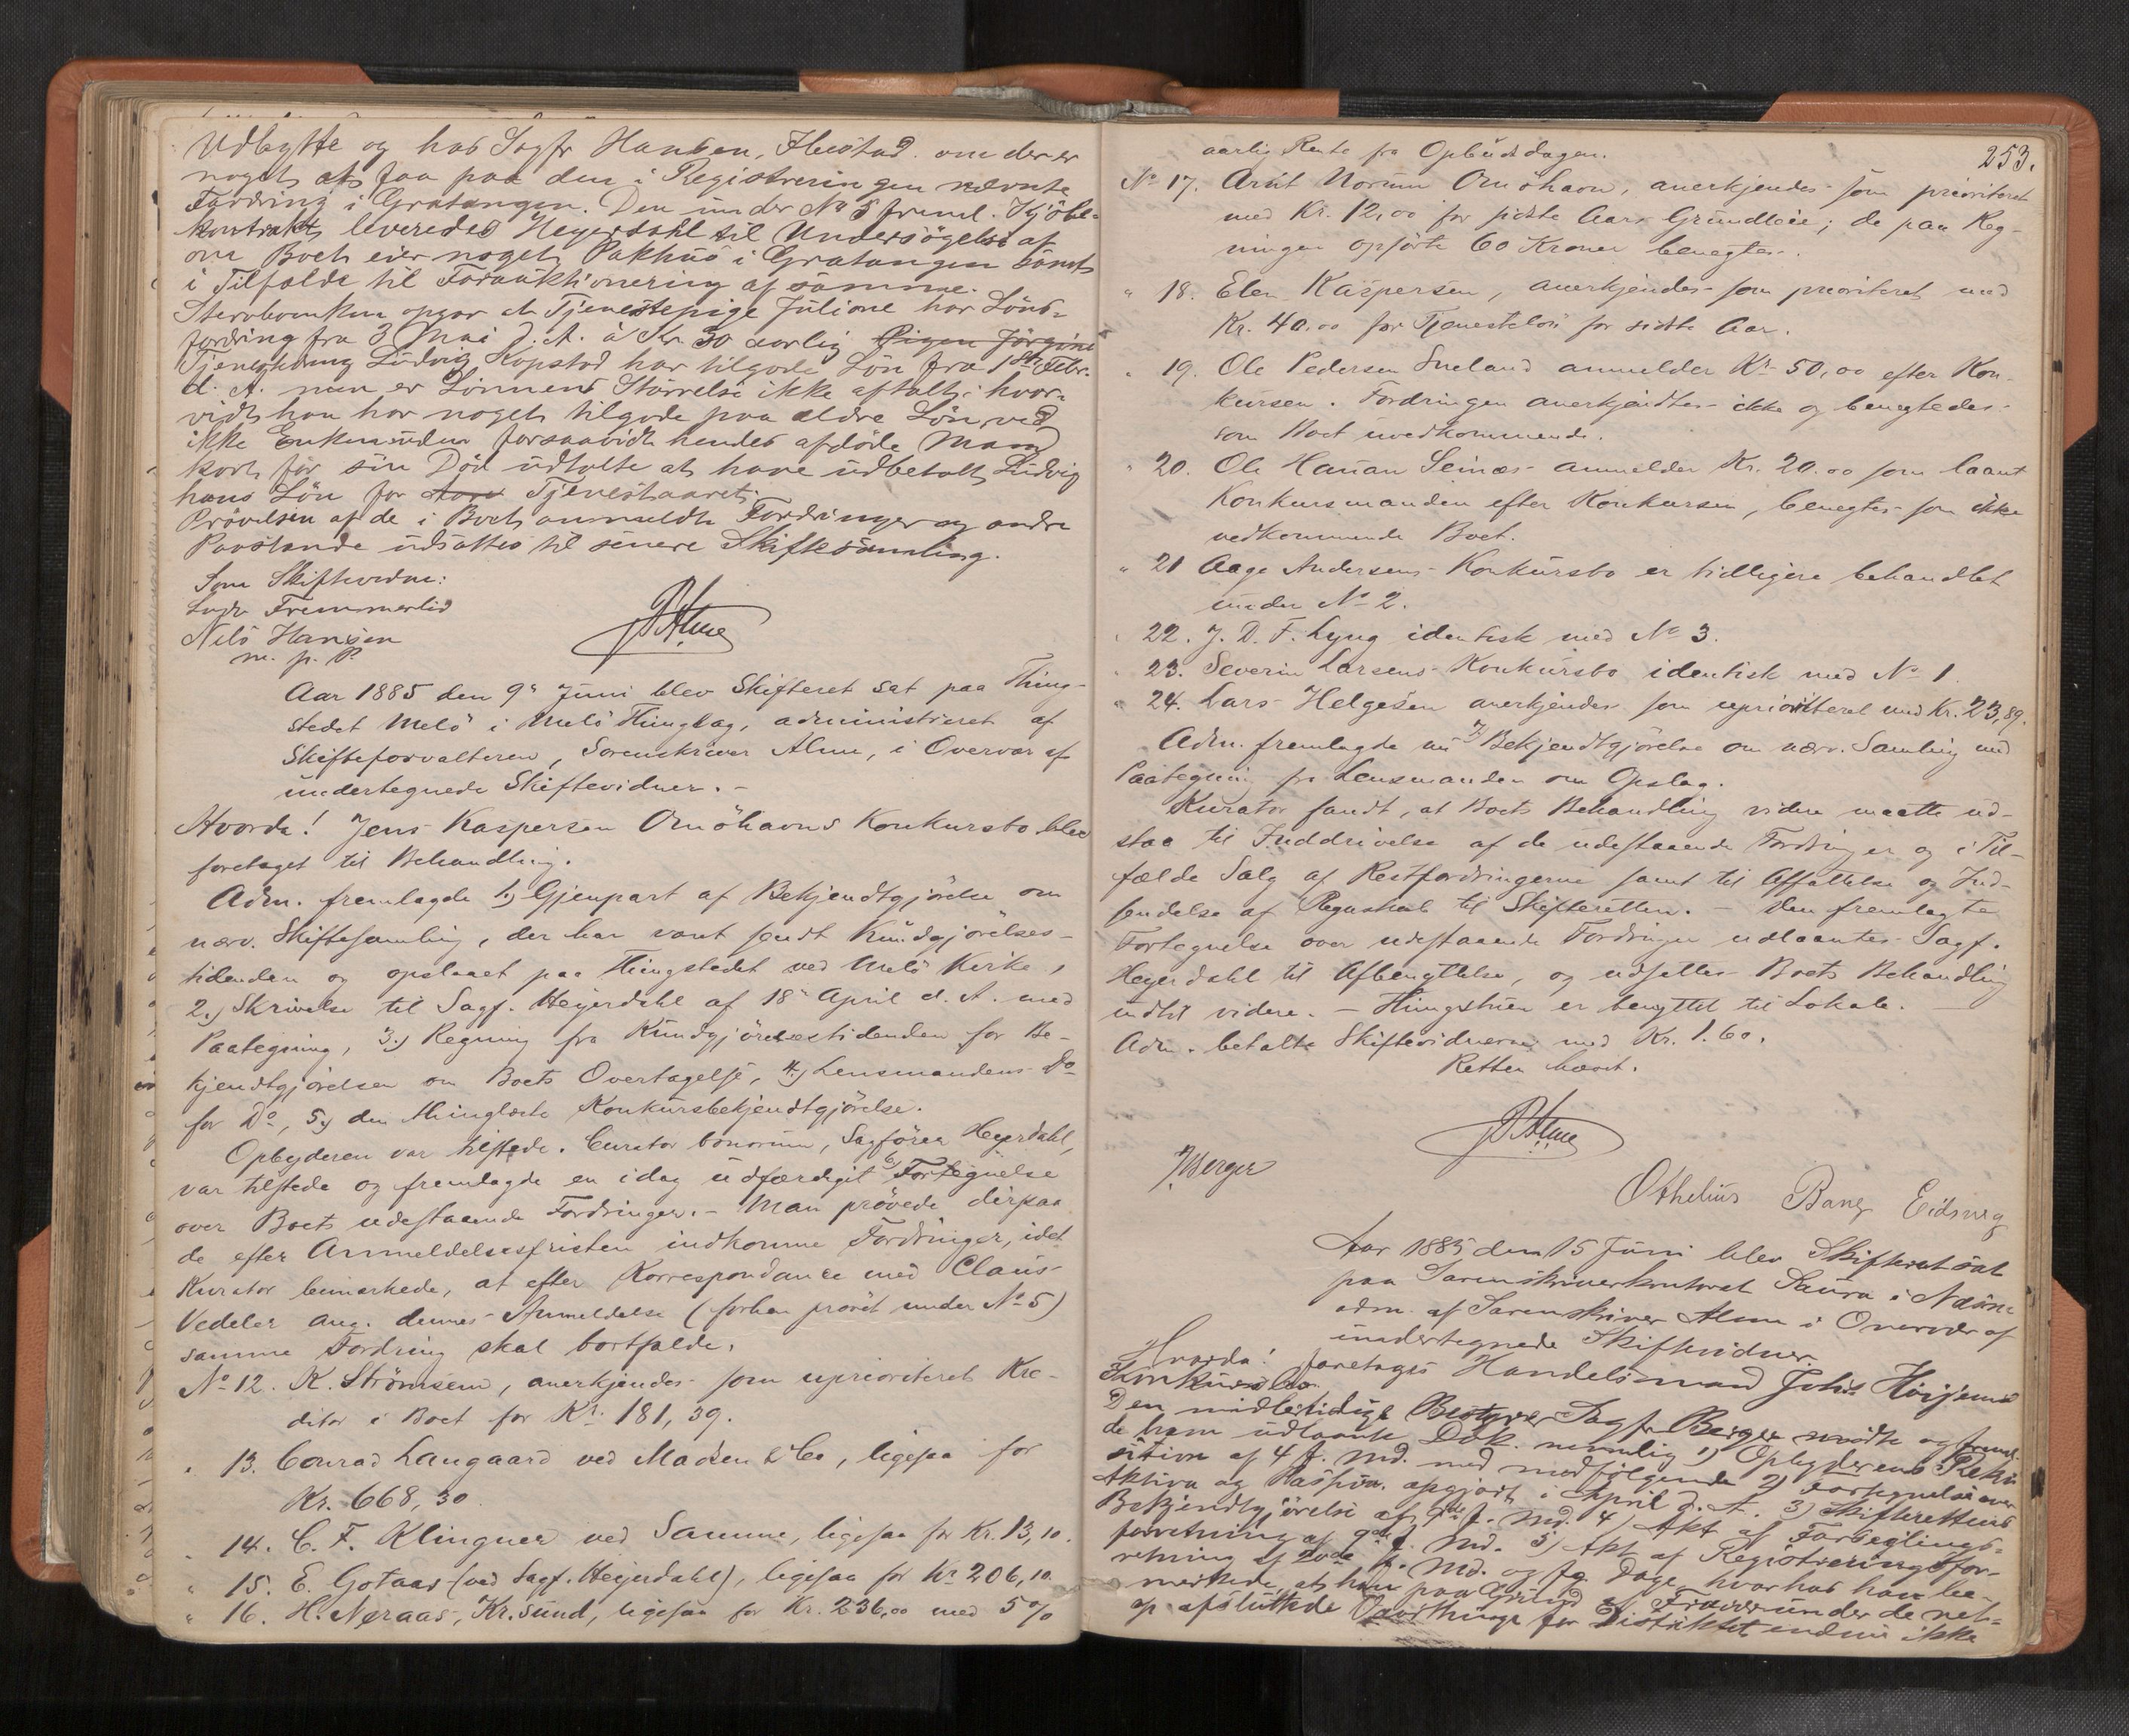 Udbytte og hos Sagf Hansen, Ibestad. om der er
noget at faa paa den i Registreringen nævnte
Fordring i Gratangen. Den under No 5 freml. Kjöbe-
kontrakt leveredes Heyerdahl til Undersögelse af
om Boet eier noget Pakhus i Gratangen samt
i Tilfælde til Forauktionering af samme.
Stervboenken opgav at Tjenestepige Juliane har Löns-
fordring fra 3 Mai d. A. á Kr 30 aarlig Pigen Jörgine
Tjenestedreng Ludvig Kopstad har tilgode Lön fra 1ste Febr.
d. A. men er Lönnens Störrelse ikke aftalt; hvor-
vidt han har noget tilgode paa ældre Lön, ved
ikke Enken uden forsaavidt hendes afdöde Mand
kort för sin Död udtalte at have udbetalt Ludvig
hans Lön for Tjenesteaaret.
Prövelsen af de i Boet anmeldte Fordringer og andre
Paastande udsattes til senere Skiftesamling.
Som Skiftevidne:
Fremmerlid
Nils Hansen
m. p. P.
Alme
Aar 1885 den 9de Juni blev Skifteret sat paa Thing-
stedet Melö i Melö Thinglag, administreret af
Skifteforvalteren, Sorenskriver Alme, i Overvær af
undertegnede Skiftevidner. -
Hvorda! Jens Kaspersen Omöhavns Konkursbo blev
foretaget til Behandling.
Adm. fremlagde 1) Gjenpart af Bekjendtgjörelse om
nærv. Skiftesamling, der har været sendt Kundgjörelses-
tidenden og opslaaet paa Thingstedet ved Melö Kirke,
2.) Skrivelse til Sagf. Heyerdahl af 18de April d. A. med
Paategning, 3.) Regning fra Kundgjörelsestidenden for Be-
kjendtgjörelsen om Boets Overtagelse, 4.) Lensmandens Do
for Do, 5.) den thinglæste Konkursbekjendtgjörelse.
Opbyderen var tilstede. Curator bonorum, Sagförer Heyerdahl,
var tilstede og fremlagde en idag udfærdiget 6) Fortegnelse
over Boets udestaaende Fordringer. - Man prövede derpaa
de efter Anmeldelsesfristen indkomne Fordringer, idet
Kurator bemærkede, at efter Korrespondance med Claus
Vedeler ang. dennes Anmeldelse (forhen prövet under No 5)
samme Fordring skal bortfalde.
No 12. K. Strömsem, anerkjendes som uprioriteret Kre-
ditor i Boet for Kr. 181,39.
" 13. Conrad Langaard ved Madsen & Co, ligesaa for
Kr. 668,30
" 14. C. F. Klingner ved Samme, ligesaa for Kr. 13,10.
" 15. E. Gotaas (ved Sagf. Heyerdahl), ligesaa for Kr 206,10.
" 16. H. Neraas, Kr.sund, ligesaa for Kr. 236,00 med 5%
253.
aarlig Rente fra Opbudsdagen.
No 17. Arnt Norum Omöhavn, anerkjendes som prioriteret
med Kr. 12,00 for sidste Aars Grundleie; de paa Reg-
ningen opförte 60 Kroner benegtes.
" 18. Elen Kaspersen, anerkjendes som prioriteret med
Kr. 40,00 for Tjenestelön for sidste Aar.
" 19. Ole Pedersen Sneland anmelder Kr 50,00 efter Kon-
kursen. Fordringen anerkjendtes ikke og benegtedes
som Boet uvedkommende.
" 20. Ole Hanan Seines anmelder Kr. 20.00 som laant
Konkursmanden efter Konkursen, benegtes som ikke
vedkommende Boet.
" 21 Aage Andersens Konkursbo er tidligere behandlet
under No 2.
" 22. J. D. F. Lyng identisk med No 3.
" 23. Severin Larsens Konkursbo identisk med No 1
" 24. Lars Helgesen anerkjendes som uprioriteret med Kr. 23,89.
Adm. fremlagde nu 7) Bekjendtgjörelse om nærv. Samling med
Paategning fra Lensmanden om Opslag.
Kurator fandt, at Boets Behandling videre maatte ud-
staa til Inddrivelse af de udestaaende Fordringer og i Til-
fælde Salg af Restfordringerne samt til Affattelse og Ind-
sendelse af Regnskab til Skifteretten. - Den fremlagte
Fortegnelse over udestaaende Fordringer udlaantes Sagf.
Heyerdahl til Afbenyttelse, og udsættes Boets Behandling
indtil videre. - Thingstuen er benyttet til Lokale. -
Adm. betalte Skiftevidnerne med Kr. 1.60.
Retten hævet.
Alme
Berger
Othelius Bang Eidsvig
Aar 1885 den 15 Juni blev Skifteret sat
paa Sorenskriverkontoret Saura i Næsne
adm. af Sorenskriver Alme i Overvær af
undertegnede Skiftevidner.
Hvorda! foretoges Handelsmand Johs Höyjems
Konkursbo.
Den midlertidige Bestyrer Sagf Berger mödte og freml.
de ham udlaante Dok. nemlig 1) Opbyderens Rekvi-
sition af 4 f. Md. med medfölgende 2) Fortegnelse over
Aktiva og Passiva opgjort i April d. A. 3) Skifterettens
Bekjendtgjörelse af f. Md. 4) Akt af Forseglings-
forretning af 9de f. Md. 5) Akt af Registreringsfor-
retning af 20de f. Md. og fg. Dage, hvorhos han be-
mærkede, at han paa Grund af Fravær under de net-
op afsluttede Vaarthinge for Distriktet endnu ikke